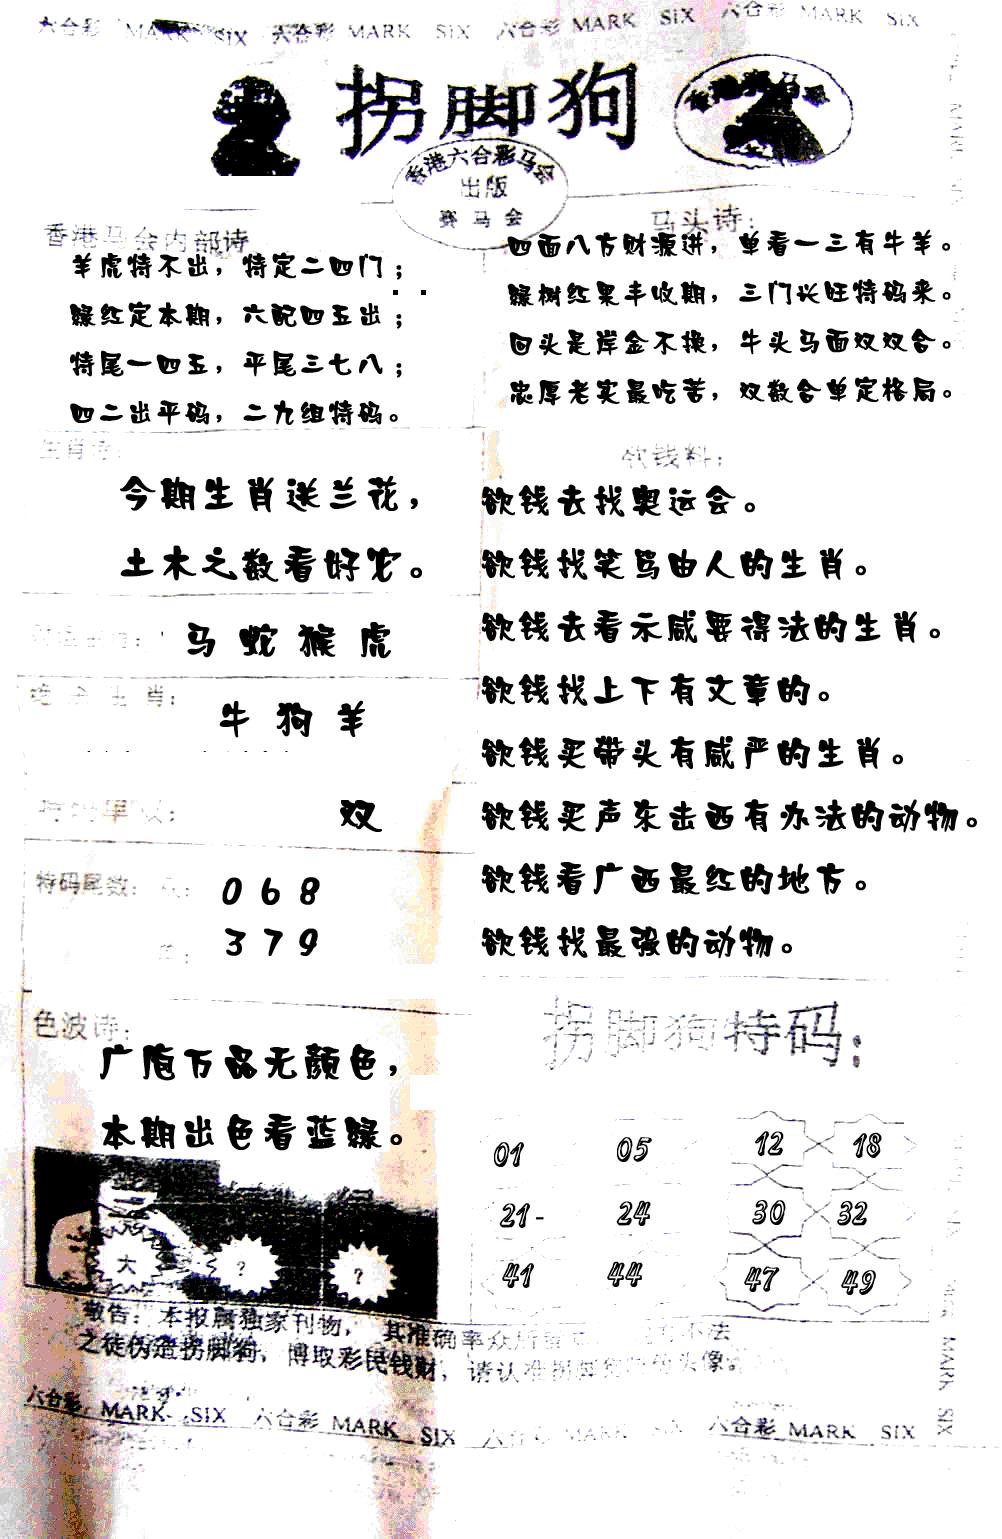 六合彩 MARK SIX 六合彩 MARK SIX 六合彩 MARK SIX 六合彩 MARK SIX
拐脚狗
香港六合彩马会
出版
赛马会
香港马会内部诗
羊虎特不出，特定二四门；
绿红定本期，六配四五出；
特尾一四五，平尾三七八；
四二出平码，二九组特码。
马头诗：
四面八方财源进，单看一三有牛羊。
绿树红果丰收期，三门兴旺特码来。
回头是岸金不换，牛头马面双双合。
忠厚老实最吃苦，双数合单定格局。
生肖诗：
今期生肖送兰花，
土木之数看好它。
马 蛇 猴 虎
生肖：
牛 狗 羊
双
特码尾数：
0 6 8
3 7 9
欲钱料：
欲钱去找奥运会。
欲钱找笑骂由人的生肖。
欲钱去看示威要得法的生肖。
欲钱找上下有文章的。
欲钱买带头有威严的生肖。
欲钱买声东击西有办法的动物。
欲钱看广西最红的地方。
欲钱找最强的动物。
色波诗：
广庖万品无颜色，
本期出色看蓝绿。
大 ? ?
拐脚狗特码：
01 05 12 18
21- 24 30 32
41 44 47 49
敬告：本报属独家刊物，其准确率众所 不法
之徒伪造拐脚狗，博取彩民钱财，请认准拐脚狗 头像
六合彩 MARK SIX 六合彩 MARK SIX 六合彩 MARK SIX 六合彩 MARK SIX
MARK SIX